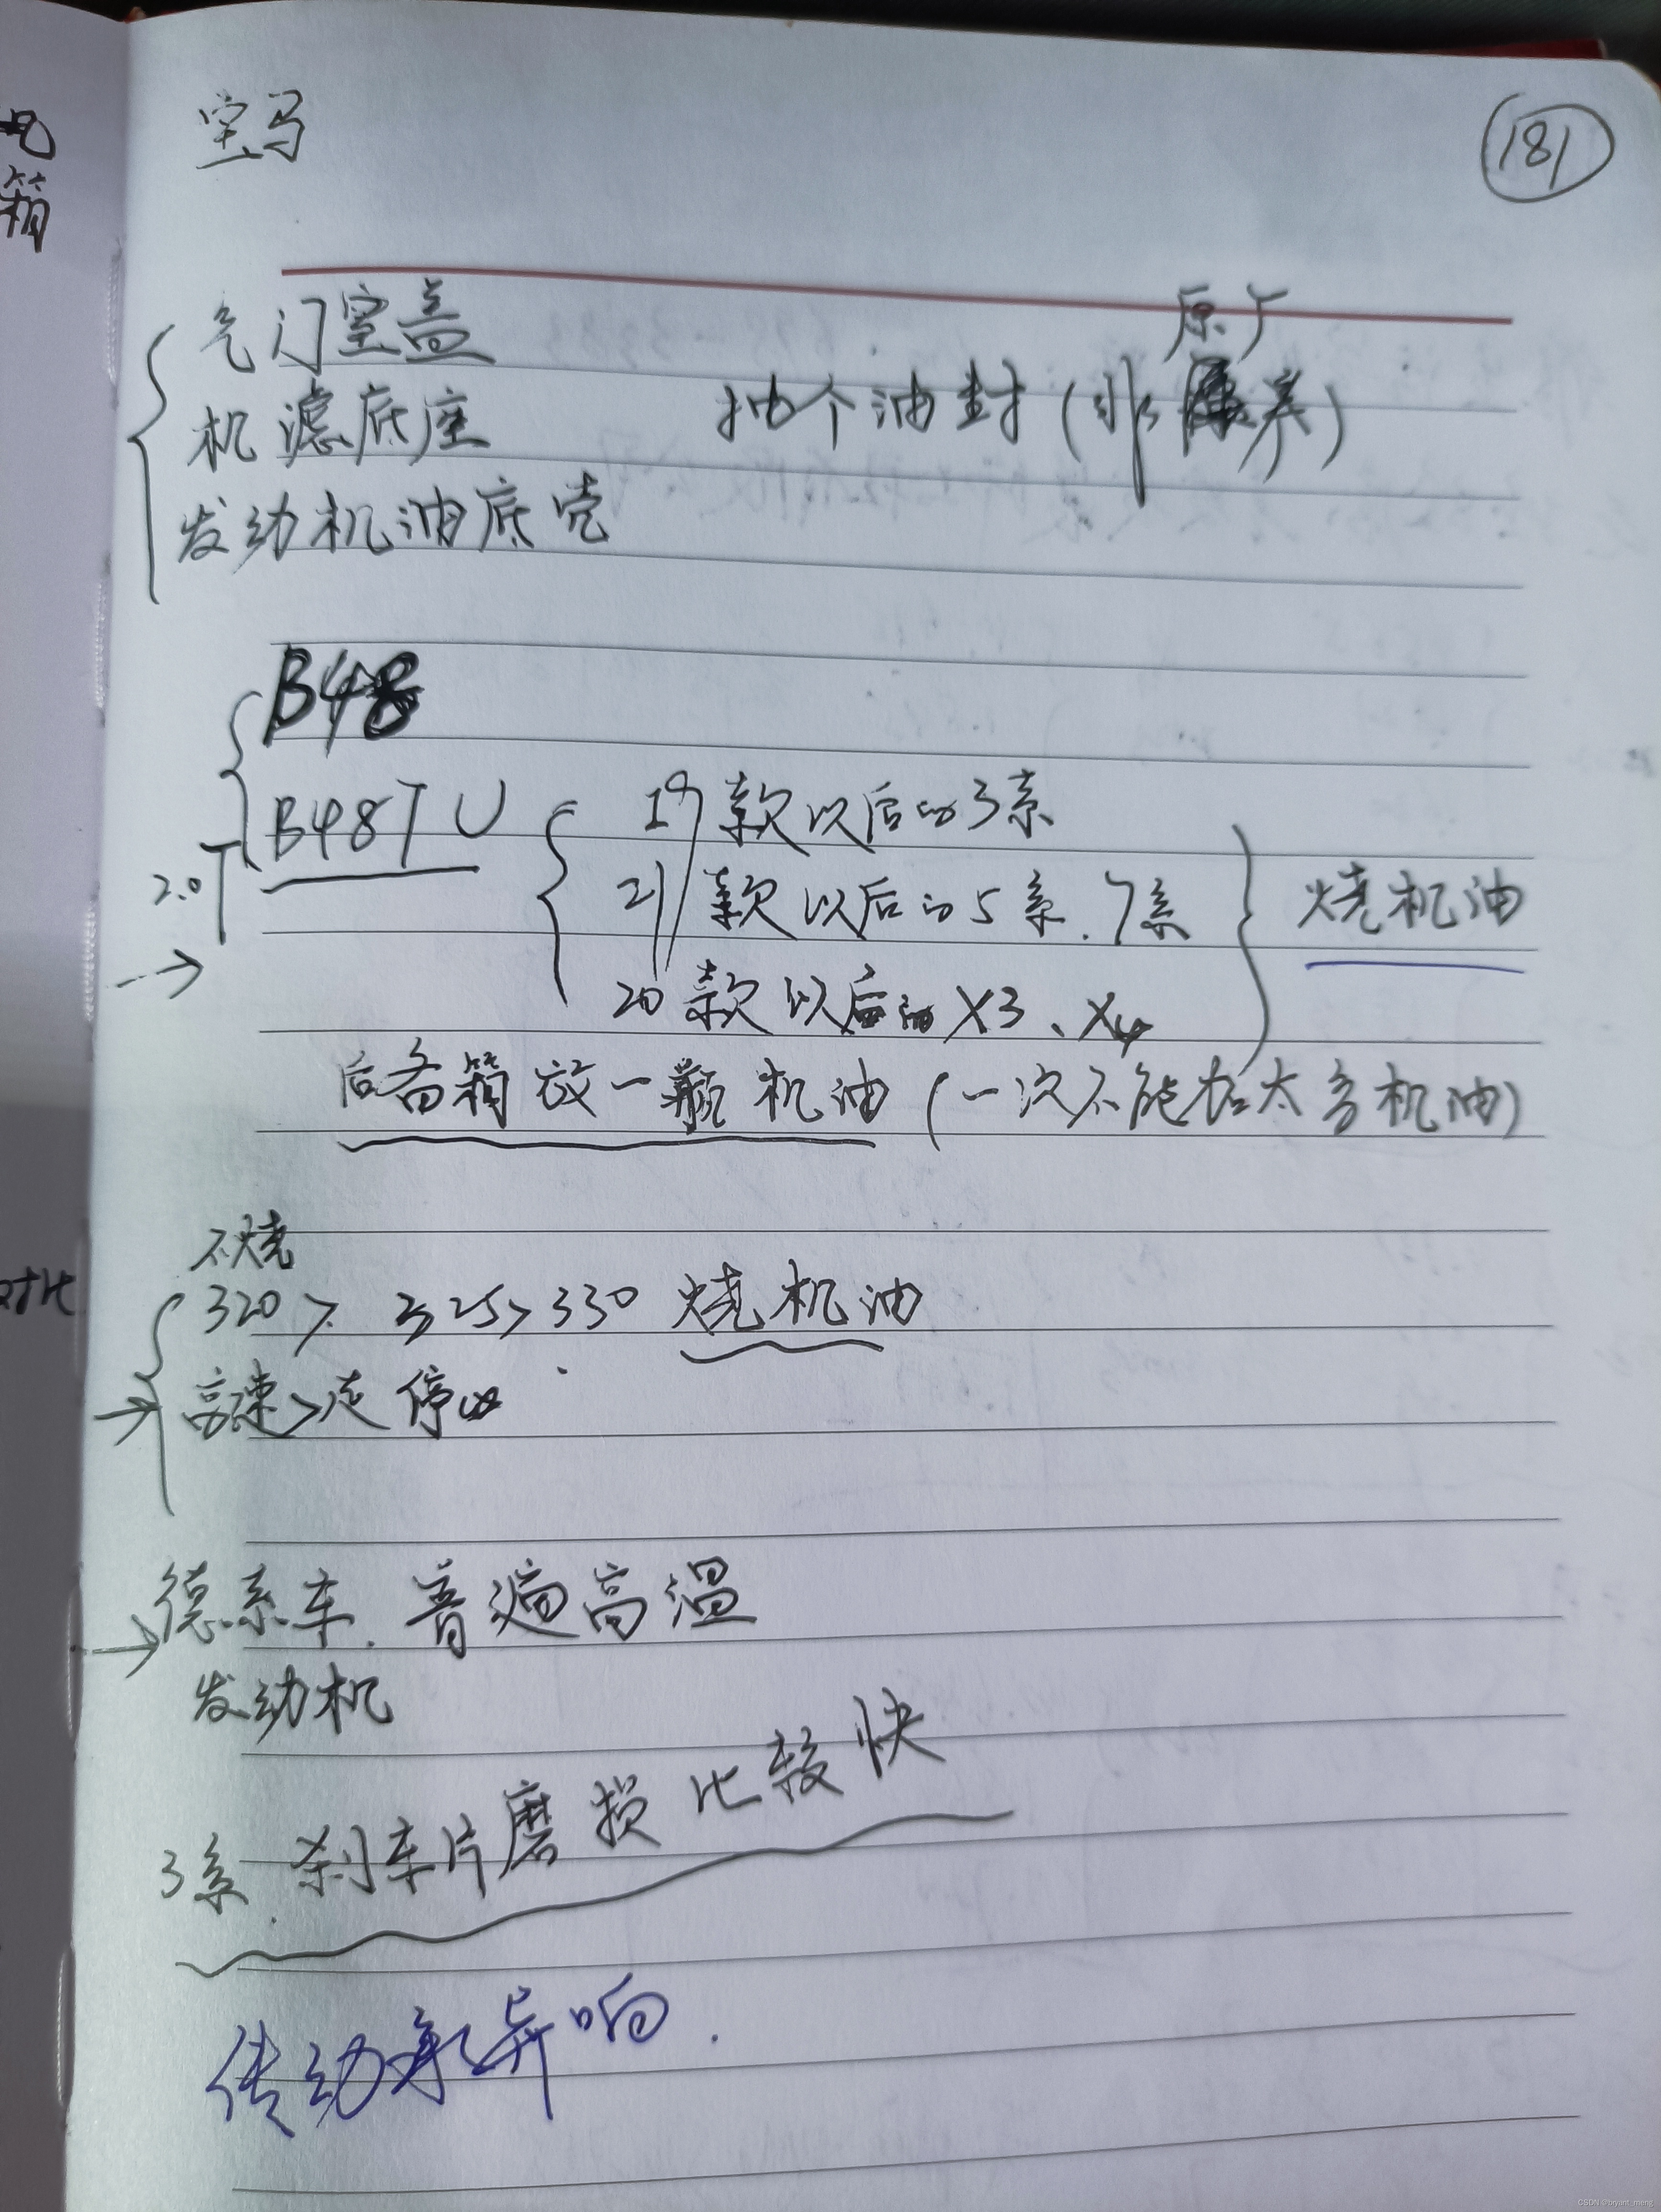 宝马
181
气门室盖
原厂
机滤底座 抽个油封（非 养）
发动机油底壳
B48
B48TU 19款以后的3系
2.0T 21款以后的5系.7系 烧机油
→ 20款以后的X3、X4
后备箱放一瓶机油（一次不能加太多机油）
不烧
320 > 325 > 330 烧机油
→ 高速 > 走停
→ 德系车. 普遍高温
发动机
3系. 刹车片磨损比较快
传动 异响.
箱
对比
CSDN @bryant_meng